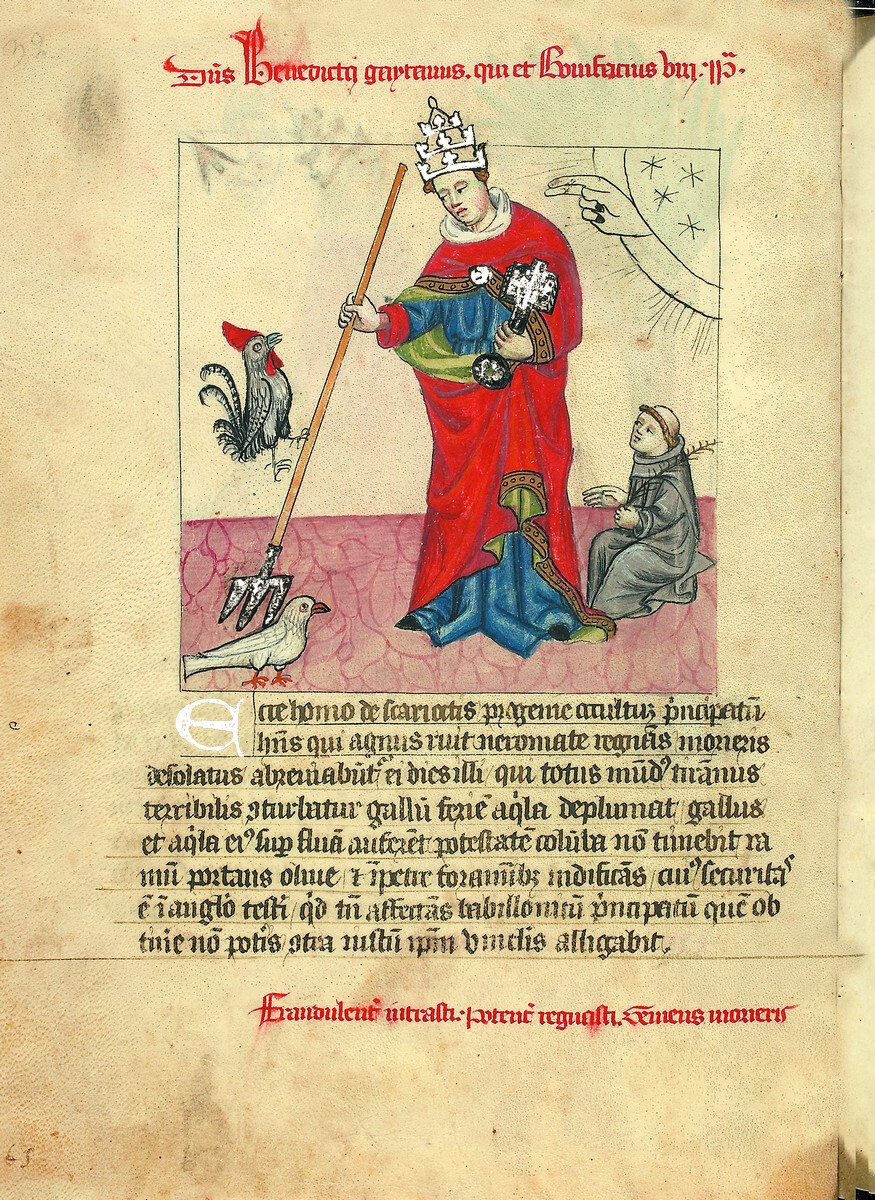 Dns Benedictus gaytanus. qui et Bonifacius viij. pp.
Ecce homo de scariottis progenie occultus pncipatu
hns qui agnus ruit neronice regnas morieris
desolatus abreviabunt ei dies illi qui totus mund tirannus
terribilis sturbatur gallu aqla deplumat gallus
et aqla ei sup auferent potestate coluba no timebit ra
mu portans olive in foraminibus nidificas cui securitas
e i anglo testi qd tu affectas babilloniu pncipatu que ob
tine no potis stra iustu ipm vinclis alligabit.
Fraudulent intrasti. potent regnasti. Gemens morieris